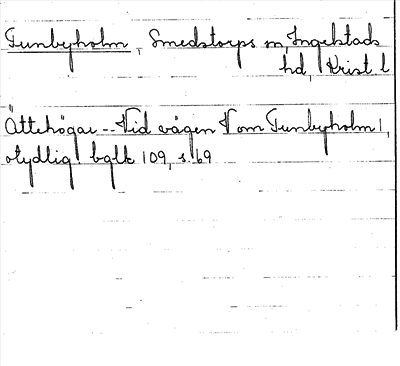 Tunbyholm, Smedstorps sn, Ingelstads
hd, Krist l
Ättehögar -- Vid vägen V om Tunbyholm 1,
otydlig bglk 109, s. 69